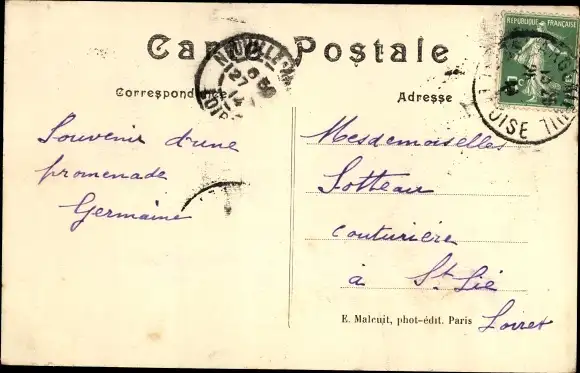 Carte Postale
Correspondance
Adresse
RÉPUBLIQUE FRANÇAISE
5c
NEUVILLE
27
14
OISE
Souvenir d'une
promenade
Germaine
Mesdemoiselles
Sotteau
couturière
à St Lié
Loiret
E. Malcuit, phot-édit. Paris